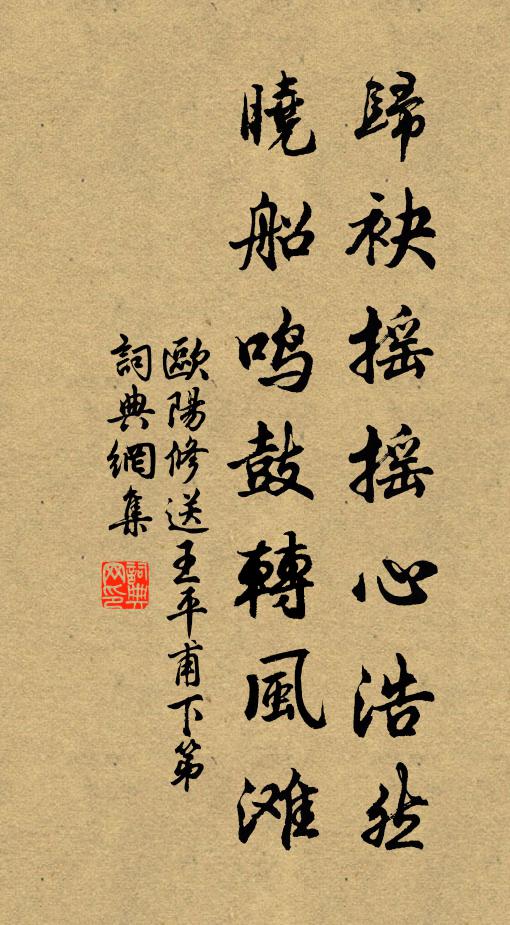 歸袂摇摇心浩然
曉船鸣鼓轉風滩
歐陽修送王平甫下第
詞典網集
詞典网印